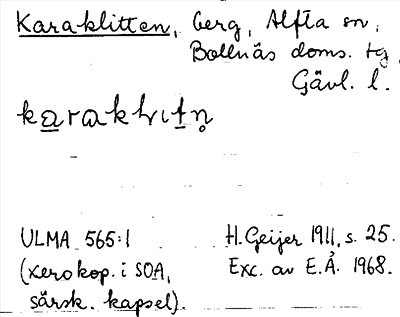 Karaklitten, berg, Alfta sn,
Bollnäs doms. tg,
Gävl. l.
karaklitn̥
ULMA 565:1 H. Geijer 1911, s. 25.
(xerokop. i SOA, Exc. av E.Å. 1968.
särsk. kapsel).